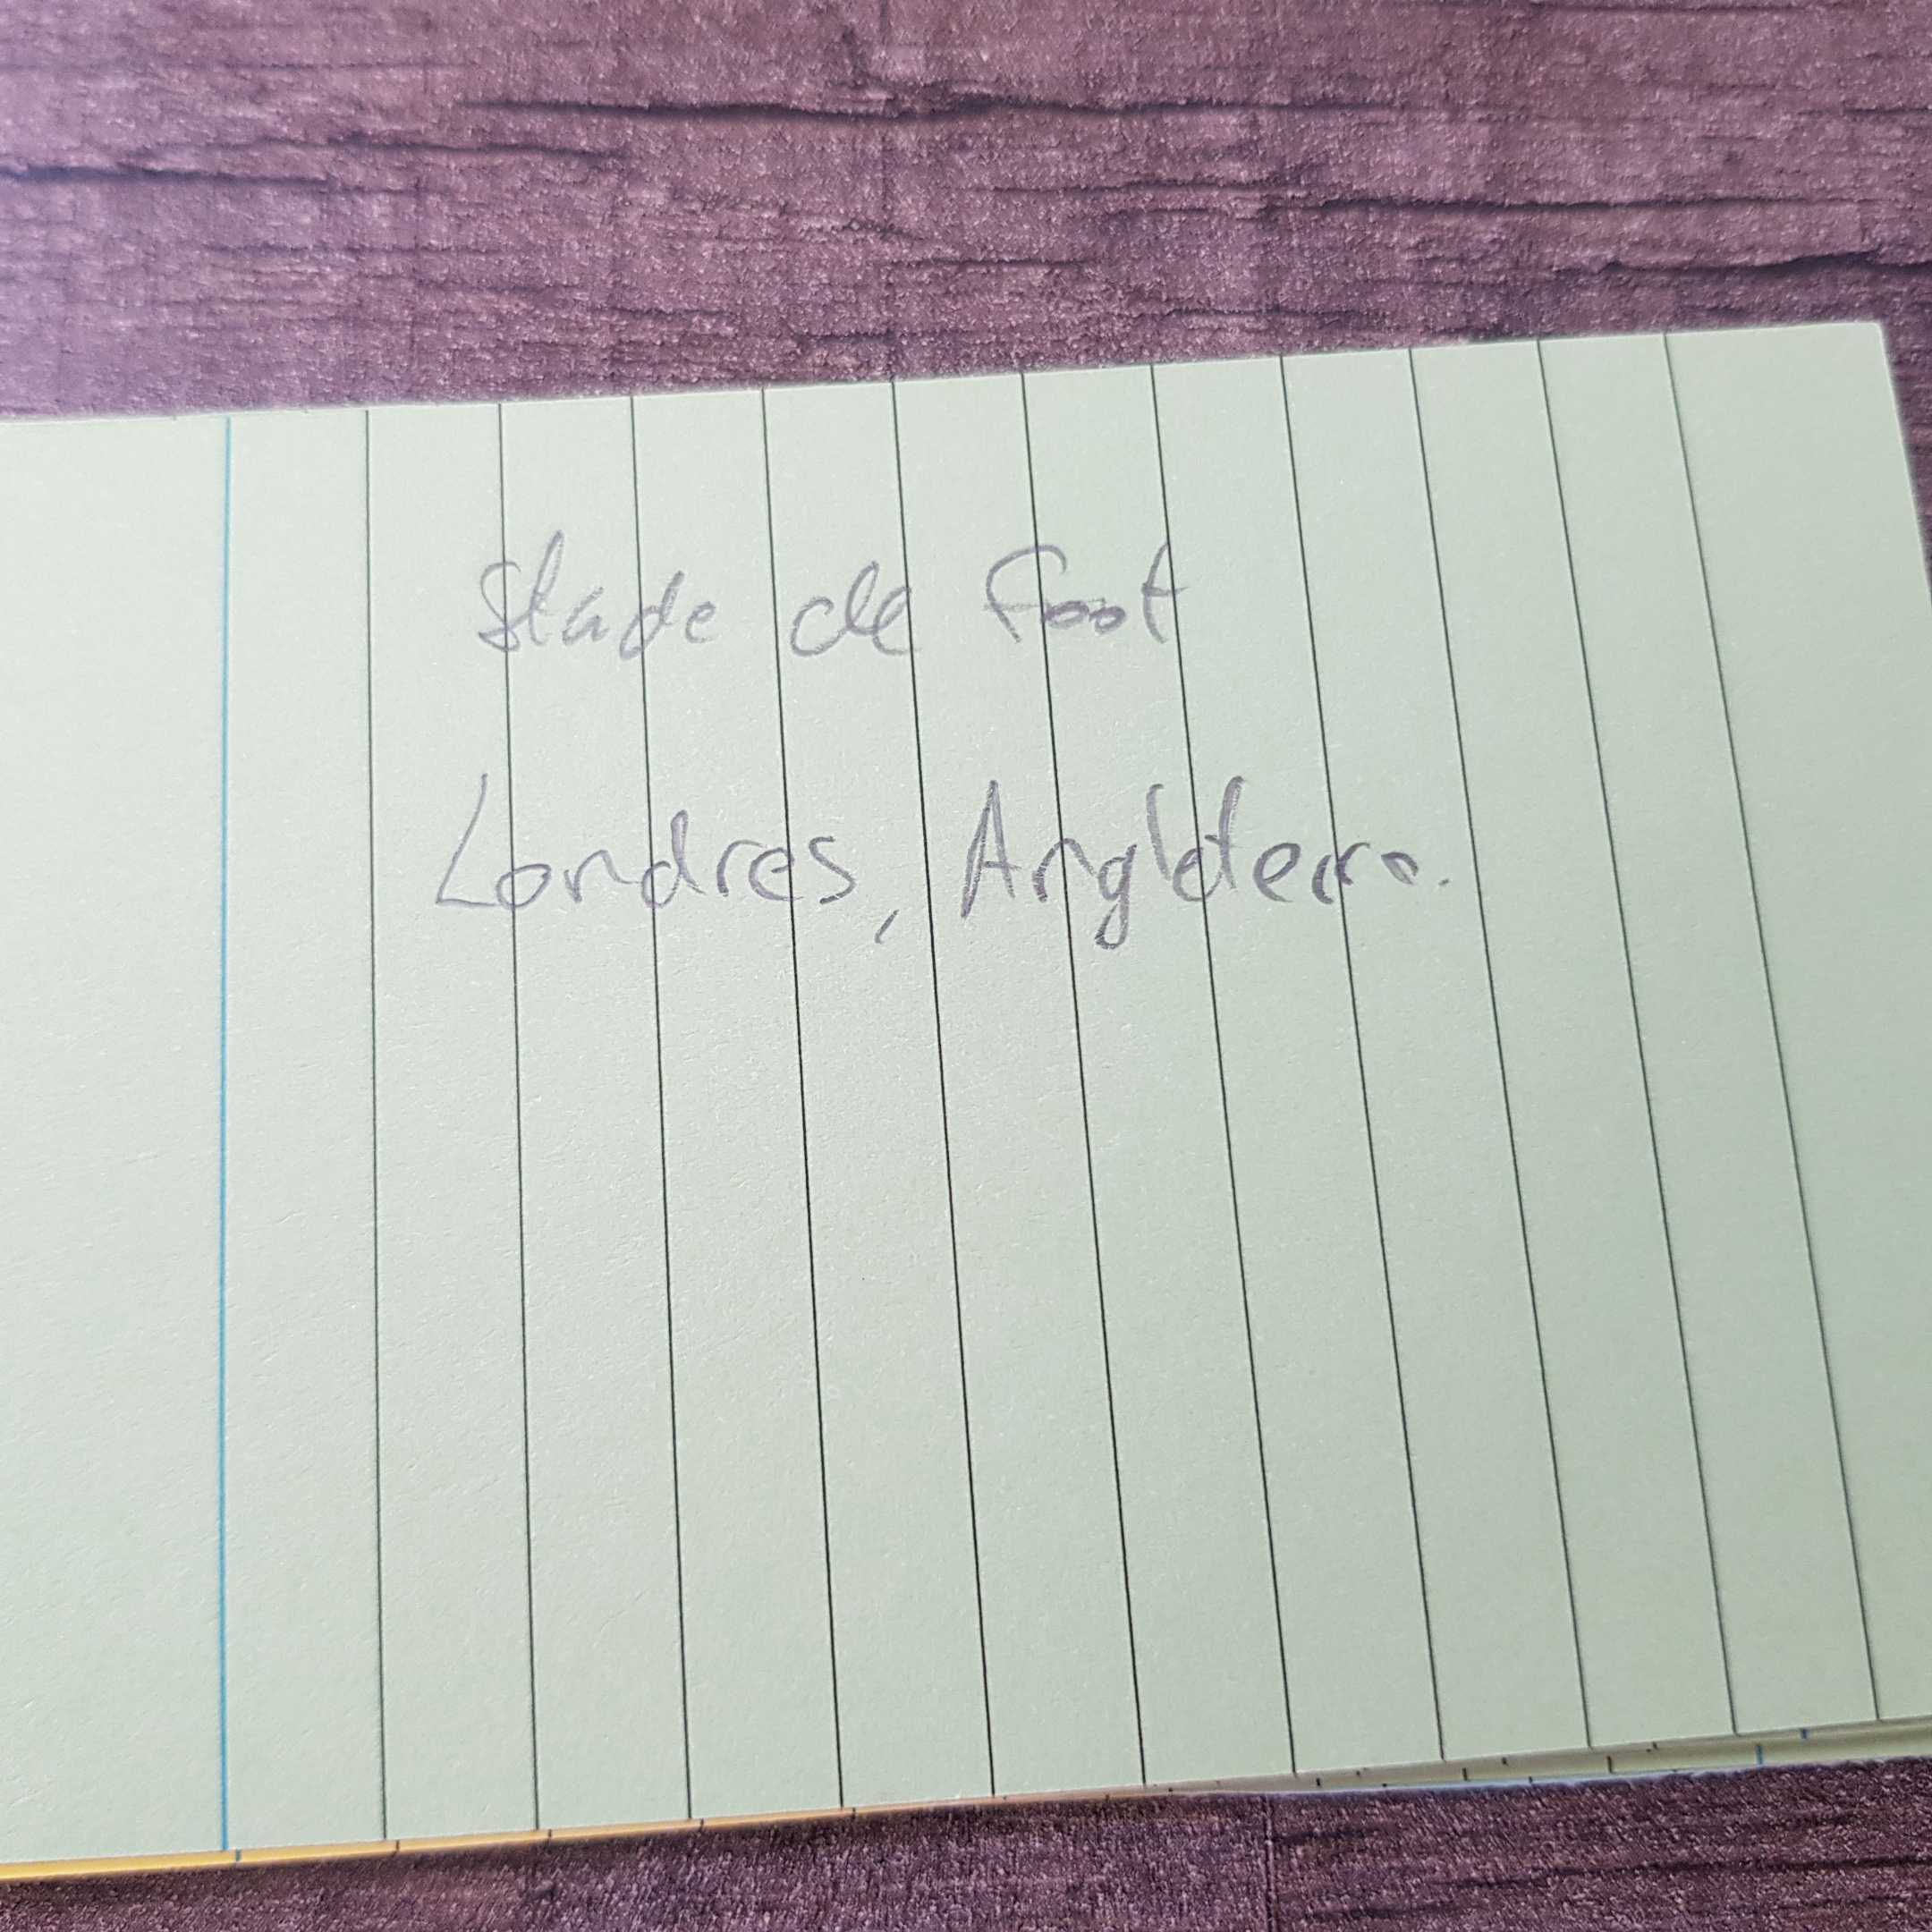 Stade de foot
Londres, Angleterre.